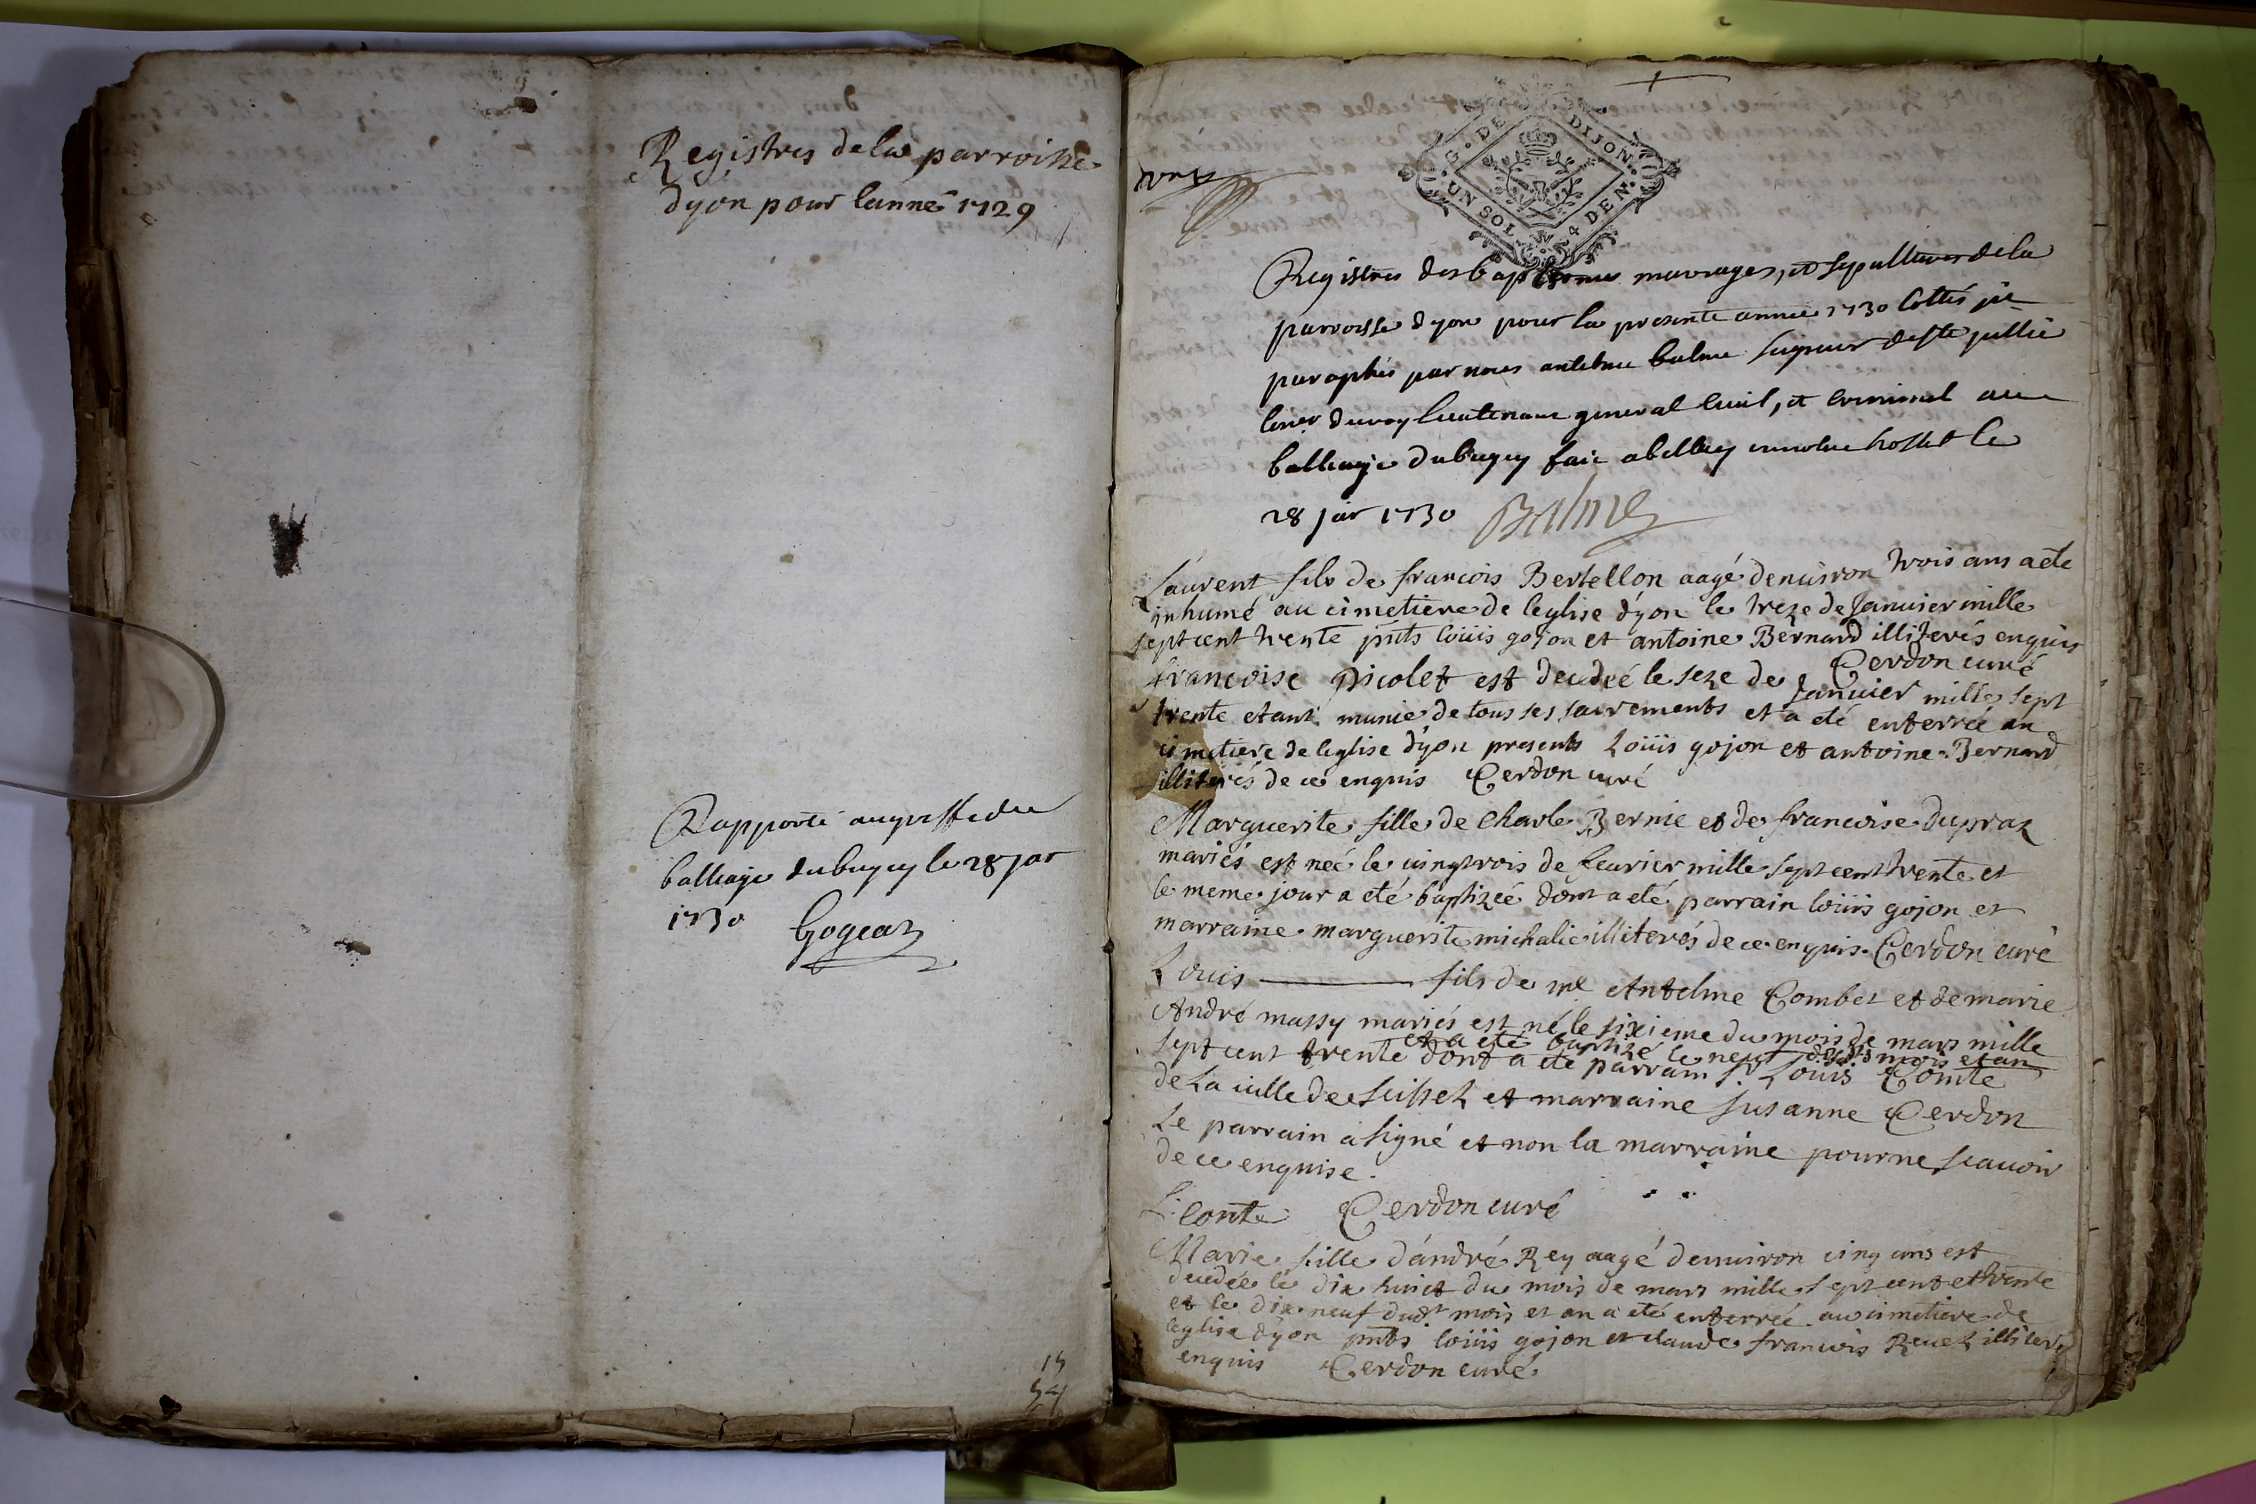 Registres de la parroisse
dyon pour lanneé 1729
Rapporté au greffe du
balliage du bugey le 28 jar
1730 Gogeat
15
54
G. DE DIJON.
UN SOL. 4 DEN.
Registres des baptemes mariages, et sepultures de la
parroisse dyon pour la presente année 1730 Cottés
paraphés par nous antelme balme seigneur de ste jullie
du roy lieutenant general civil, et criminel au
balliage du bugey faic a belley hostel le
28 jar 1730 Balme
Laurent fils de francois Bertellon aagé denuiron trois ans a eté
inhumé au cimetiere de leglise dyon le treze de Januier mille
sept cent trente pnts loüis gojon et antoine Bernard illiterés enquis
Cerdon curé
francoise Nicolet est decedeé le seze de Januier mille sept
trente etant munie de tous ses sacrements et a eté enterreé au
cimetiere de leglise dyon presents Loüis gojon et antoine Bernard
illiterés de ce enquis Cerdon curé
Marguerite fille de Charle Bernie et de francoise dupraz
mariés est neé le uingtrois de feurier mille sept cent trente et
le meme jour a eté baptizeé dont a eté parrain loüis gojon et
marraine marguerite michalic illiterés de ce enquis Cerdon curé
Louis fils de me Antelme Combet et de marie
André massy mariés est né le sixieme du mois de mars mille
et a eté baptizé le neuf desdts mois et an
sept cent trente dont a eté parrain sr Louis Comte
de La uille de seissel et marraine susanne Cerdon
Le parrain a signé et non la marraine pour ne scauoir
de ce enquise.
L. Conte Cerdon curé
Marie fille d'andré Rey aagé denuiron cinq ans est
decedeé le dix huict du mois de mars mille sept cent et trente
et le dix neuf dudt mois et an a eté enterreé au cimetiere de
leglise dyon pnts loüis gojon et claude francois Reuet illiterés
enquis Cerdon curé